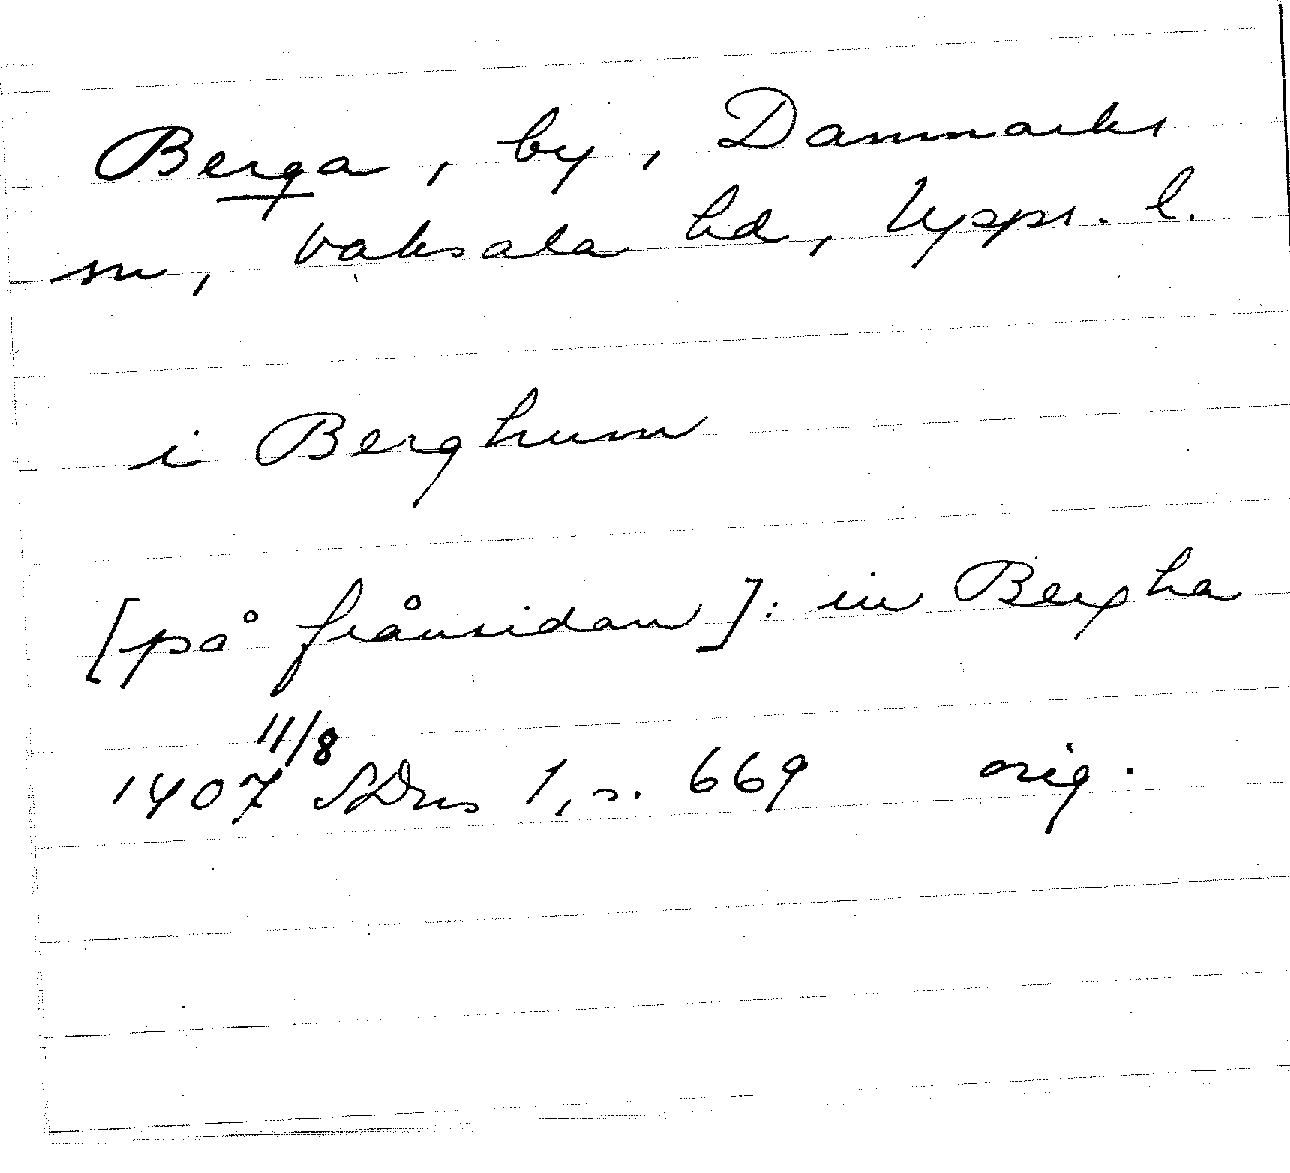 Berga, by, Danmarks
sn, Vaksala hd, Upps. l.
i Berghum
[på frånsidan]: in Bergha
1407 11/8 SDns 1, s. 669 orig.